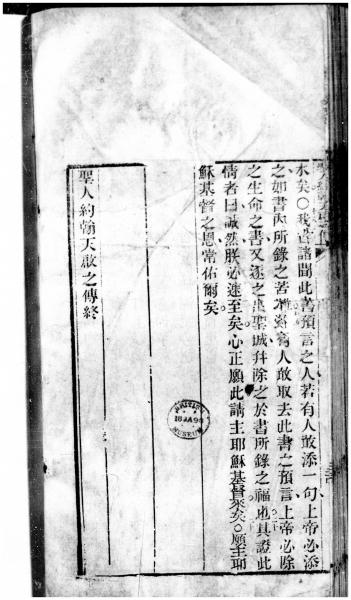 水矣○我告諸聞此書預言之人若有人敢添一句上帝必添
之如書內所錄之苦難若有人敢取去此書之預言上帝必除
之生命之書又逐之出聖城幷除之於書所錄之福也具證此
情者曰誠然朕必速至矣心正願此請主耶穌基督來矣○願主耶
穌基督之恩常佑爾矣
聖人約翰天啟之傳終
BRITISH
MUSEUM